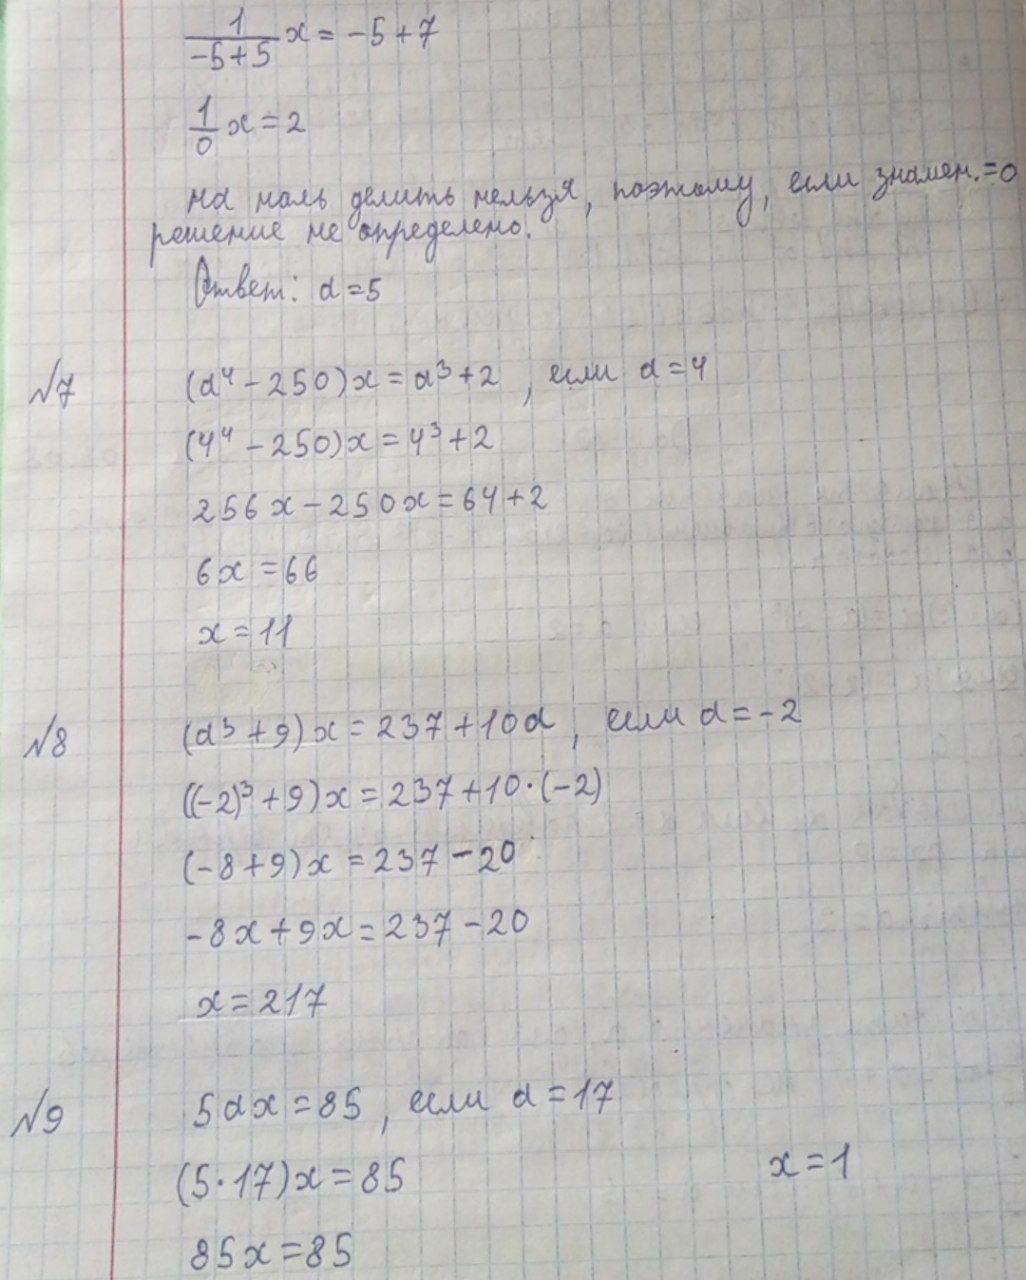 1/(-5+5) x = -5+7
1/0 x = 2
на ноль делить нельзя, поэтому, если знамен.=0
решение не определено.
Ответ: a=5
№7 (a⁴-250)x=a³+2, если a=4
(4⁴-250)x=4³+2
256x-250x=64+2
6x=66
x=11
№8 (a³+9)x=237+10a, если a=-2
((-2)³+9)x=237+10·(-2)
(-8+9)x=237-20
-8x+9x=237-20
x=217
№9 5ax=85, если a=17
(5·17)x=85
x=1
85x=85